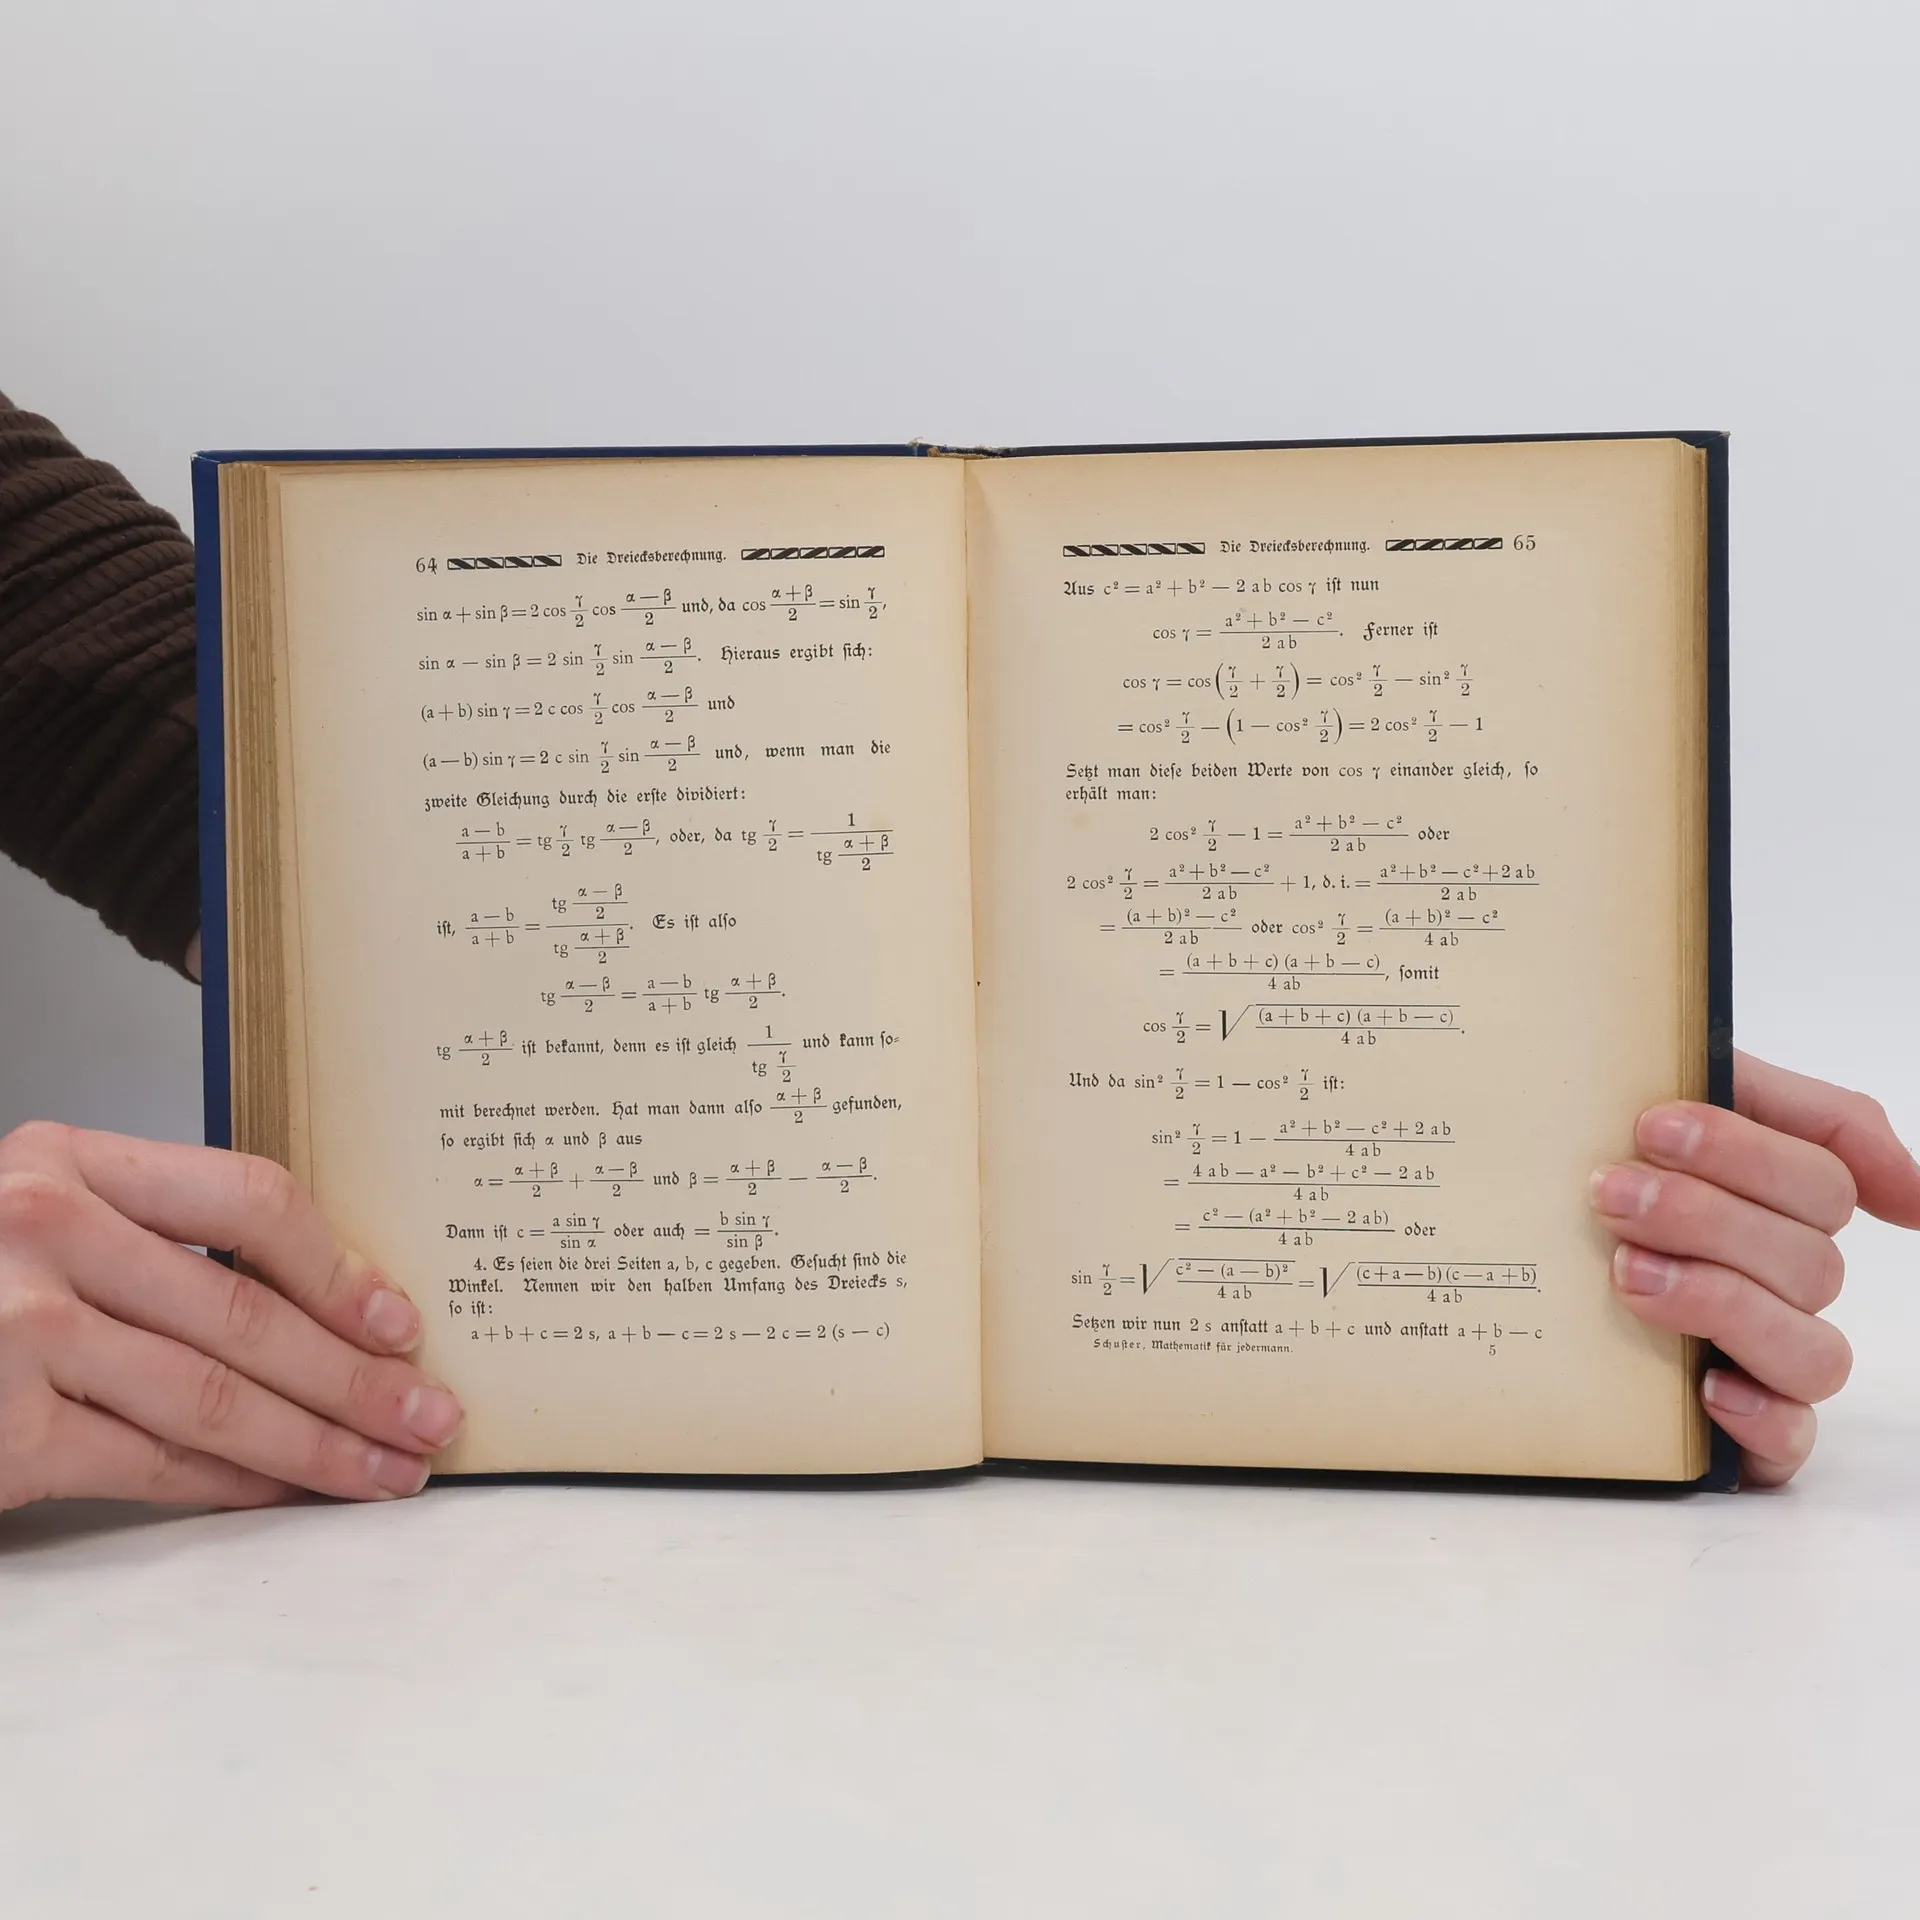 64 Die Dreiecksberechnung.
sin α + sin β = 2 cos γ/2 cos (α — β)/2 und, da cos (α + β)/2 = sin γ/2,
sin α — sin β = 2 sin γ/2 sin (α — β)/2. Hieraus ergibt ſich:
(a + b) sin γ = 2 c cos γ/2 cos (α — β)/2 und
(a — b) sin γ = 2 c sin γ/2 sin (α — β)/2 und, wenn man die
zweite Gleichung durch die erſte dividiert:
(a — b)/(a + b) = tg γ/2 tg (α — β)/2, oder, da tg γ/2 = 1/(tg (α + β)/2)
iſt, (a — b)/(a + b) = (tg (α — β)/2)/(tg (α + β)/2). Es iſt alſo
tg (α — β)/2 = (a — b)/(a + b) tg (α + β)/2.
tg (α + β)/2 iſt bekannt, denn es iſt gleich 1/(tg γ/2) und kann ſo⸗
mit berechnet werden. Hat man dann alſo (α + β)/2 gefunden,
ſo ergibt ſich α und β aus
α = (α + β)/2 + (α — β)/2 und β = (α + β)/2 — (α — β)/2.
Dann iſt c = (a sin γ)/(sin α) oder auch = (b sin γ)/(sin β).
4. Es ſeien die drei Seiten a, b, c gegeben. Geſucht ſind die
Winkel. Nennen wir den halben Umfang des Dreiecks s,
ſo iſt:
a + b + c = 2 s, a + b — c = 2 s — 2 c = 2 (s — c)
Die Dreiecksberechnung. 65
Aus c² = a² + b² — 2 ab cos γ iſt nun
cos γ = (a² + b² — c²)/(2 ab). Ferner iſt
cos γ = cos (γ/2 + γ/2) = cos² γ/2 — sin² γ/2
= cos² γ/2 — (1 — cos² γ/2) = 2 cos² γ/2 — 1
Setzt man dieſe beiden Werte von cos γ einander gleich, ſo
erhält man:
2 cos² γ/2 — 1 = (a² + b² — c²)/(2 ab) oder
2 cos² γ/2 = (a² + b² — c²)/(2 ab) + 1, d. i. = (a² + b² — c² + 2 ab)/(2 ab)
= ((a + b)² — c²)/(2 ab) oder cos² γ/2 = ((a + b)² — c²)/(4 ab)
= ((a + b + c) (a + b — c))/(4 ab), ſomit
cos γ/2 = √((a + b + c) (a + b — c))/(4 ab).
Und da sin² γ/2 = 1 — cos² γ/2 iſt:
sin² γ/2 = 1 — (a² + b² — c² + 2 ab)/(4 ab)
= (4 ab — a² — b² + c² — 2 ab)/(4 ab)
= (c² — (a² + b² — 2 ab))/(4 ab) oder
sin γ/2 = √(c² — (a — b)²)/(4 ab) = √((c + a — b) (c — a + b))/(4 ab).
Setzen wir nun 2 s anſtatt a + b + c und anſtatt a + b — c
Schuſter, Mathematik für jedermann. 5